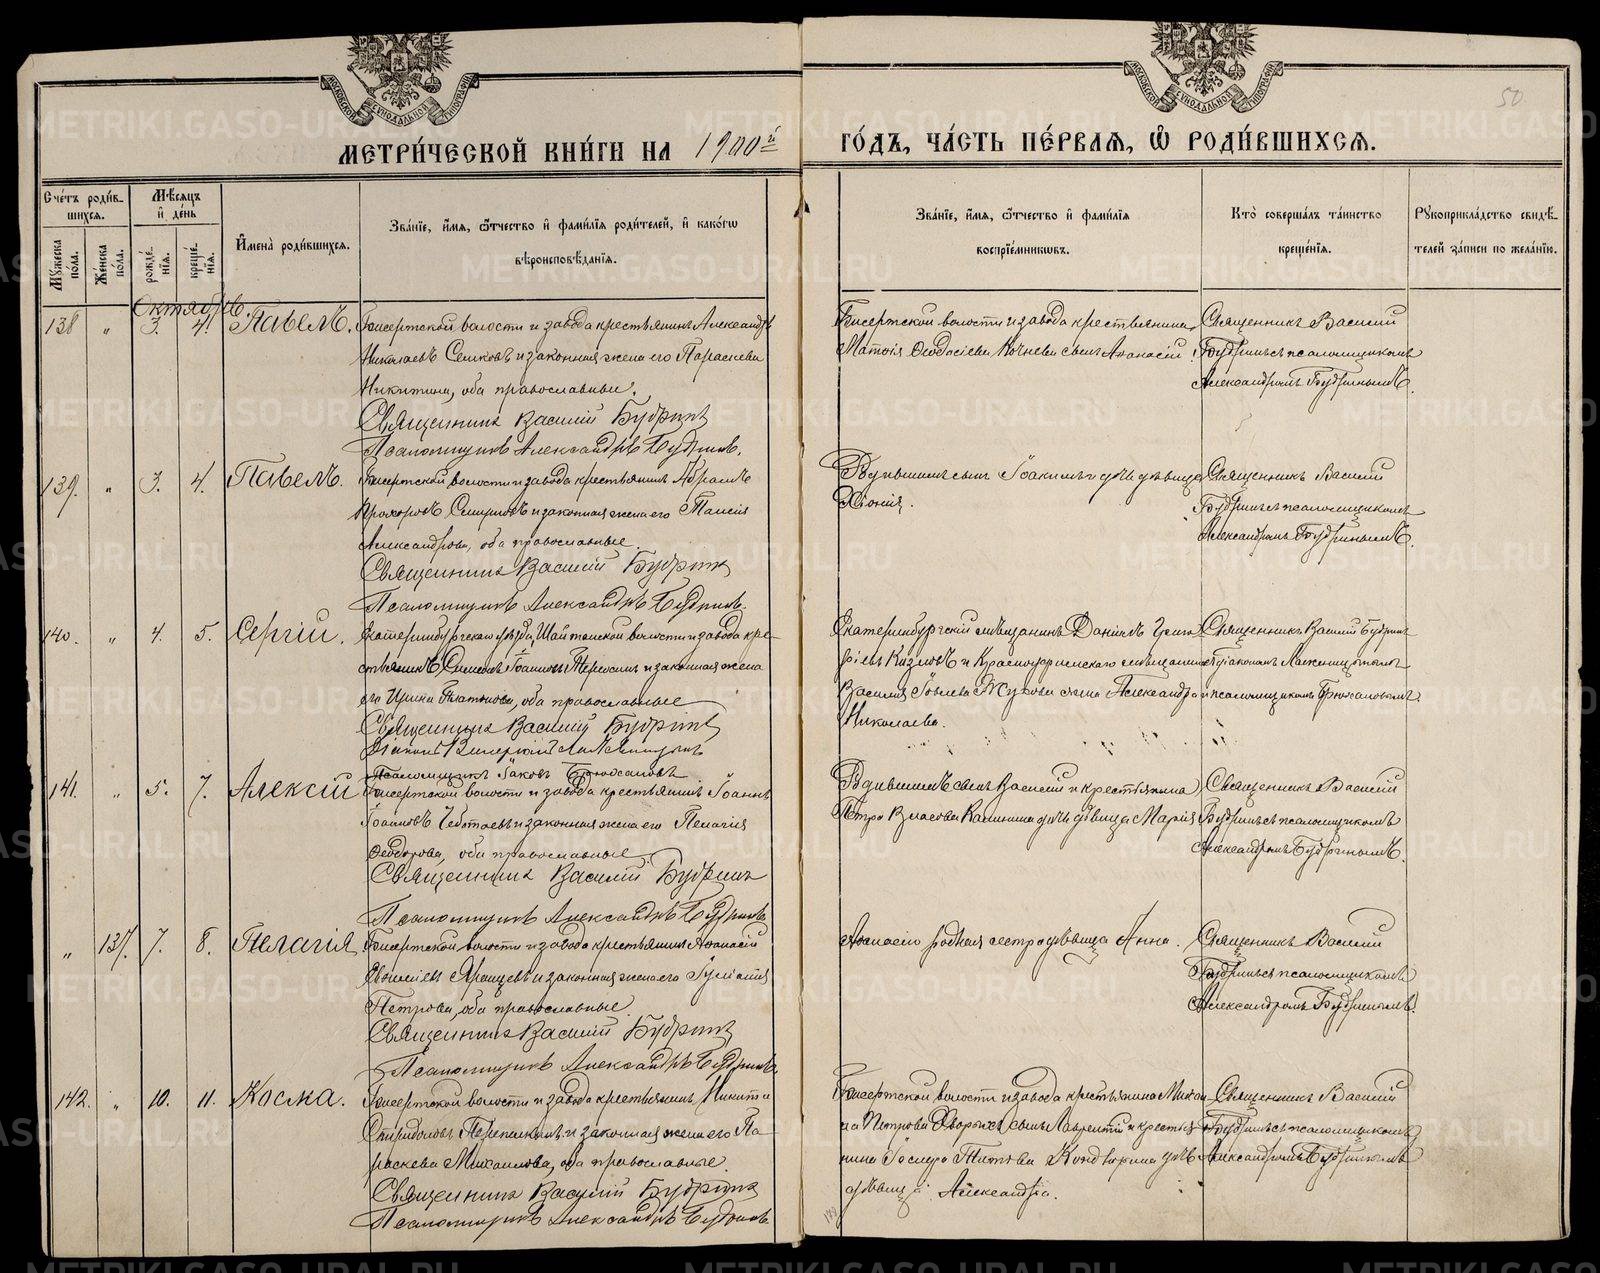 МОСКОВСКОЙ СУНОДАЛЬНОЙ ТИПОГРАФІИ
МОСКОВСКОЙ СУНОДАЛЬНОЙ ТИПОГРАФІИ
50
МЕТРИ́ЧЕСКОЙ КНИ́ГИ НА 1900й
ГО́ДЪ, ЧА́СТЬ ПЕ́РВАЯ, Ѽ РОДИ́ВШИХСЯ.
Сче́тъ роди́в-
шихся.
Мѣ́сяцъ
и҆ де́нь
Му́жеска по́ла.
Же́нска по́ла.
рожде́-
нїя.
креще́-
нїя.
И҆мена̀ роди́вшихся.
Зва́нїе, и҆́мя, ѻ҆́тчество и҆ фами́лїя роди́телей, и҆ како́гѡ
вѣроисповѣ́данїя.
Зва́нїе, и҆́мя, ѻ҆́тчество и҆ фами́лїя
воспрїе́мниковъ.
Кто̀ соверша́лъ та́инство
креще́нїя.
Рꙋкоприкла́дство свидѣ́-
телей за́писи по жела́нїю.
Октябрь.
138 " 3. 4. Павелъ.
Бисертской волости и завода крестьянинъ Александръ
Николаевъ Сенковъ и законная жена его Параскева
Никитина, оба православные.
Священникъ Василій Будринъ
Псаломщикъ Александръ Будринъ.
Бисертской волости и завода крестьянина
Матѳія Ѳеодосіева Кочнева сынъ Аѳанасій.
Священникъ Василій
Будринъ съ псаломщикомъ
Александромъ Будринымъ.
139. " 3. 4. Павелъ.
Бисертской волости и завода крестьянинъ Абрамъ
Прохоровъ Смирновъ и законная жена его Таисія
Александрова, оба православные.
Священникъ Василій Будринъ
Псаломщикъ Александръ Будринъ.
Вдивишимъ сынъ Іоакимъ и дочь дѣвица
Хіонія.
Священникъ Василій
Будринъ съ псаломщикомъ
Александромъ Будринымъ.
140. " 4. 5. Сергій.
Екатеринбургскаго уѣзда, Шайтанской волости и завода кре-
стьянинъ Симеонъ Іоанновъ и законная жена
его Ирина Платонова, оба православные
Священникъ Василій Будринъ
Діаконъ Валерій
Псаломщикъ Іаковъ Брюхановъ
Екатеринбургскій мѣщанинъ Даніилъ Григо-
рьевъ и Красноуфимскаго мѣщанина
Василія Іовлева Жукова жена Александра
Николаева.
Священникъ Василій Будринъ
съ діакономъ
и псаломщикомъ Брюхановымъ.
141. " 5. 7. Алексій
Бисертской волости и завода крестьянинъ Іоаннъ
Іоанновъ Чеботаевъ и законная жена его Пелагія
Ѳеодорова, оба православные
Священникъ Василій Будринъ
Псаломщикъ Александръ Будринъ
сынъ Василій и крестьянина
Петра Власова Калинина дочь дѣвица Марія
Священникъ Василій
Будринъ съ псаломщикомъ
Александромъ Будринымъ.
" 137. 7. 8. Пелагія
Бисертской волости и завода крестьянинъ Аѳанасій
и законная жена его Іуліанія
Петрова, оба православные.
Священникъ Василій Будринъ
Псаломщикъ Александръ Будринъ.
родная сестра дѣвица Анна.
Священникъ Василій
Будринъ съ псаломщикомъ
Александромъ Будринымъ.
142. " 10. 11. Косма.
Бисертской волости и завода крестьянинъ Никита
Спиридоновъ и законная жена его Па-
раскева Михаилова, оба православные.
Священникъ Василій Будринъ
Псаломщикъ Александръ Будринъ.
Бисертской волости и завода крестьянина Михаи-
ла Петрова сынъ Лаврентій и крестья-
нина Титова дочь
дѣвица Александра.
Священникъ Василій
Будринъ съ псаломщикомъ
Александромъ Будринымъ
METRIKI.GASO-URAL.RU